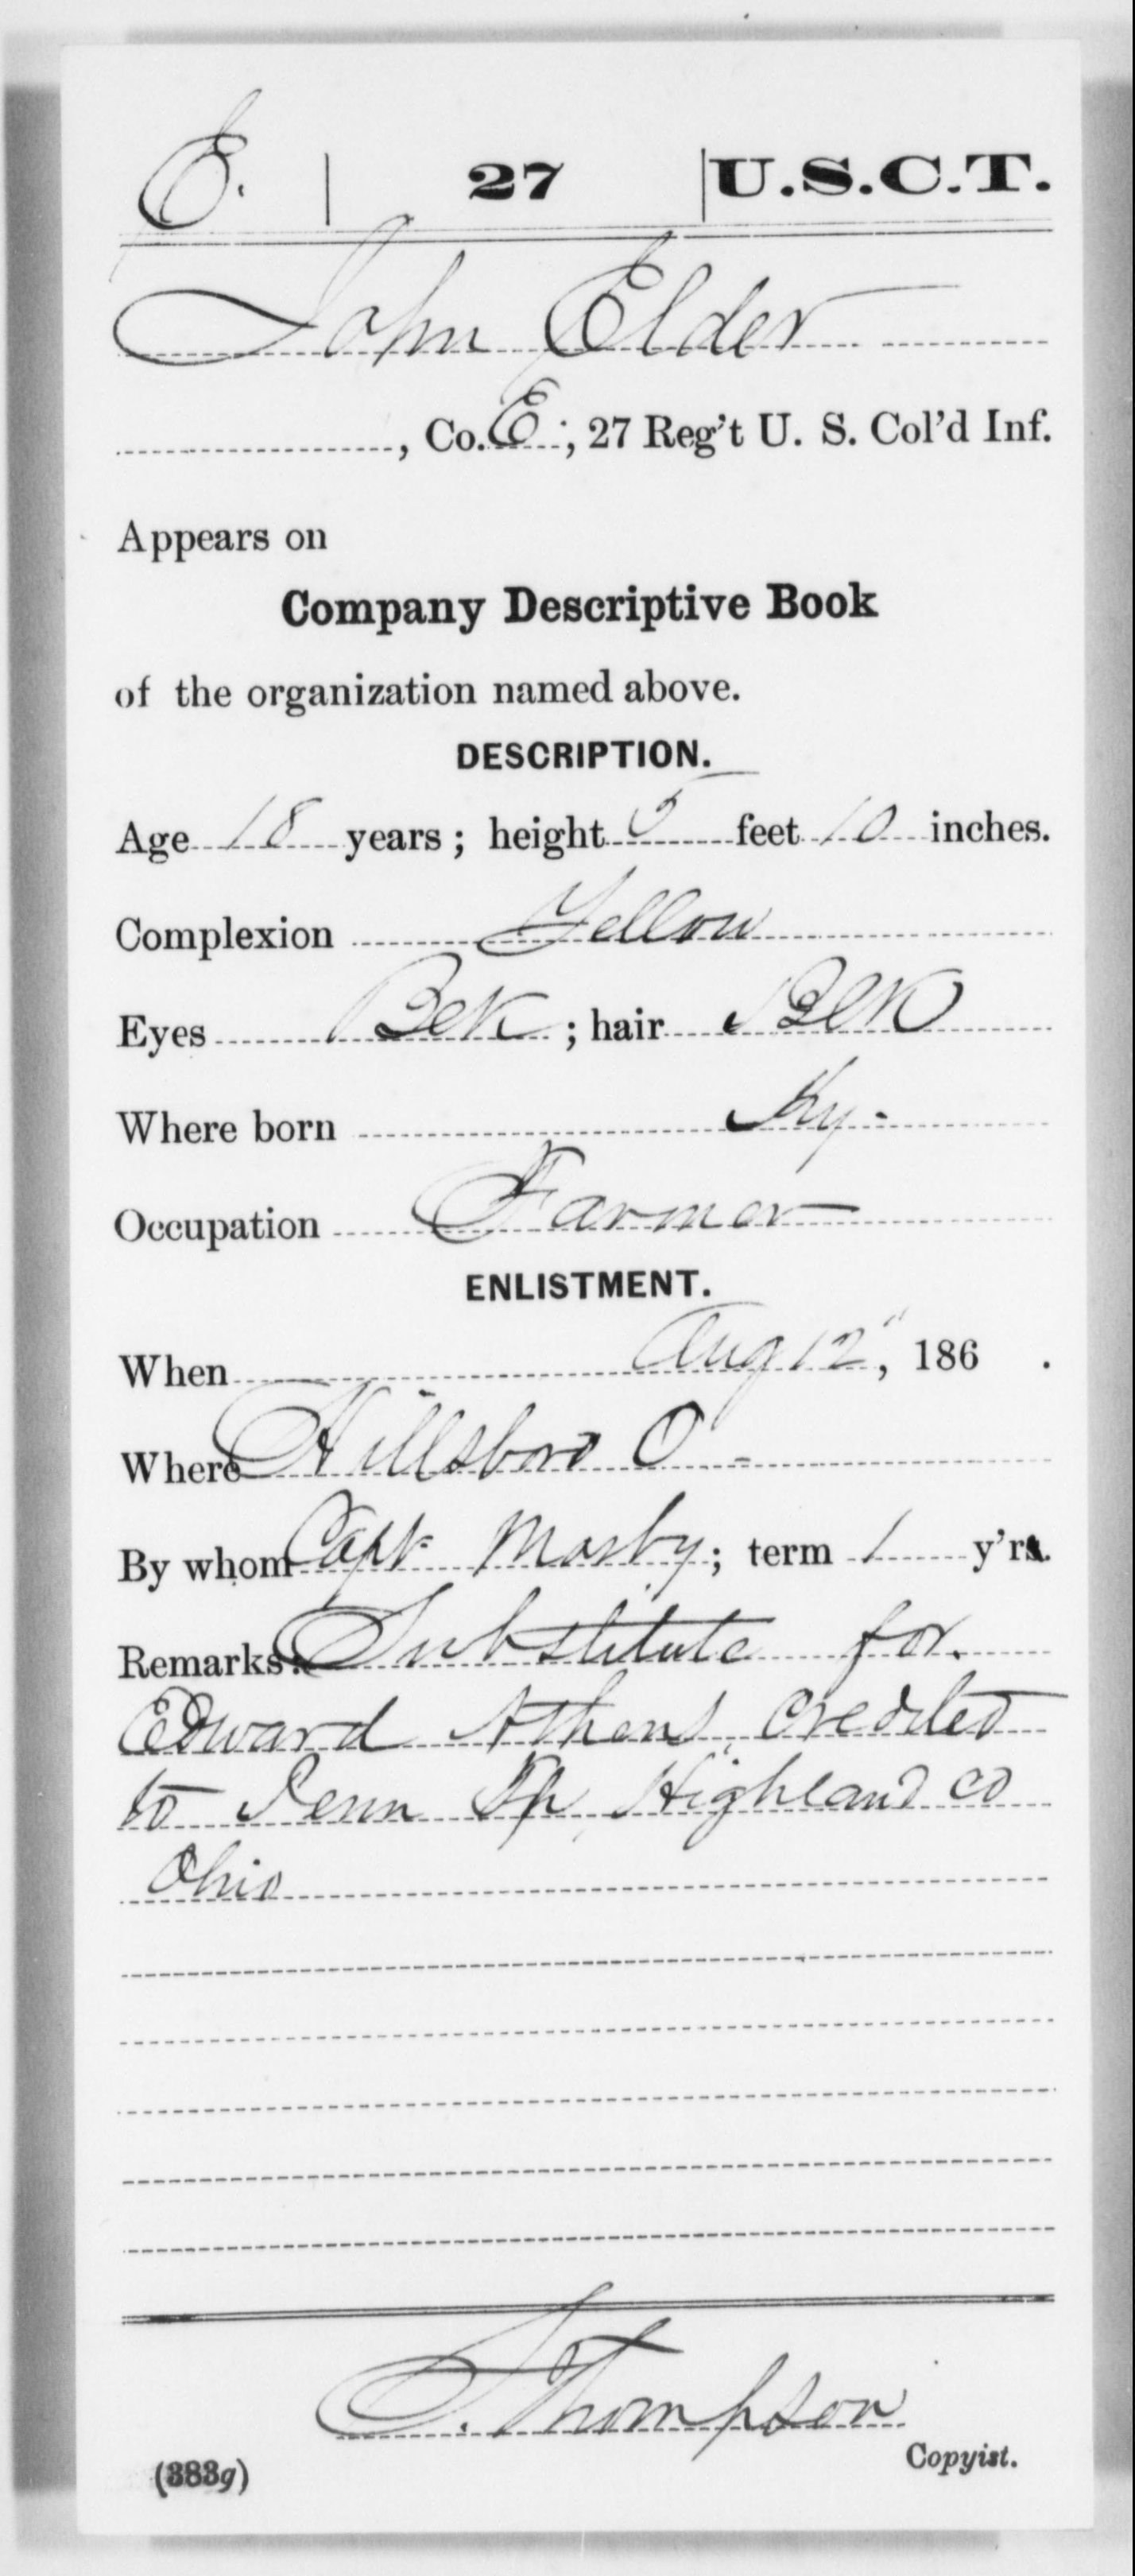 E. | 27 | U.S.C.T.
John Elder
, Co. E ; 27 Reg't U. S. Col'd Inf.
Appears on
Company Descriptive Book
of the organization named above.
DESCRIPTION.
Age 18 years; height 5 feet 10 inches.
Complexion Yellow
Eyes Blk ; hair Blk
Where born Ky.
Occupation Farmer
ENLISTMENT.
When Aug 12", 186 .
Where Hillsboro O -
By whom Capt Mosby; term 1 y'r.
Remarks: Substitute for.
Edward Athens, credited
to Penn Tp, Highland co
Ohio
S. Thompson
Copyist.
(383g)